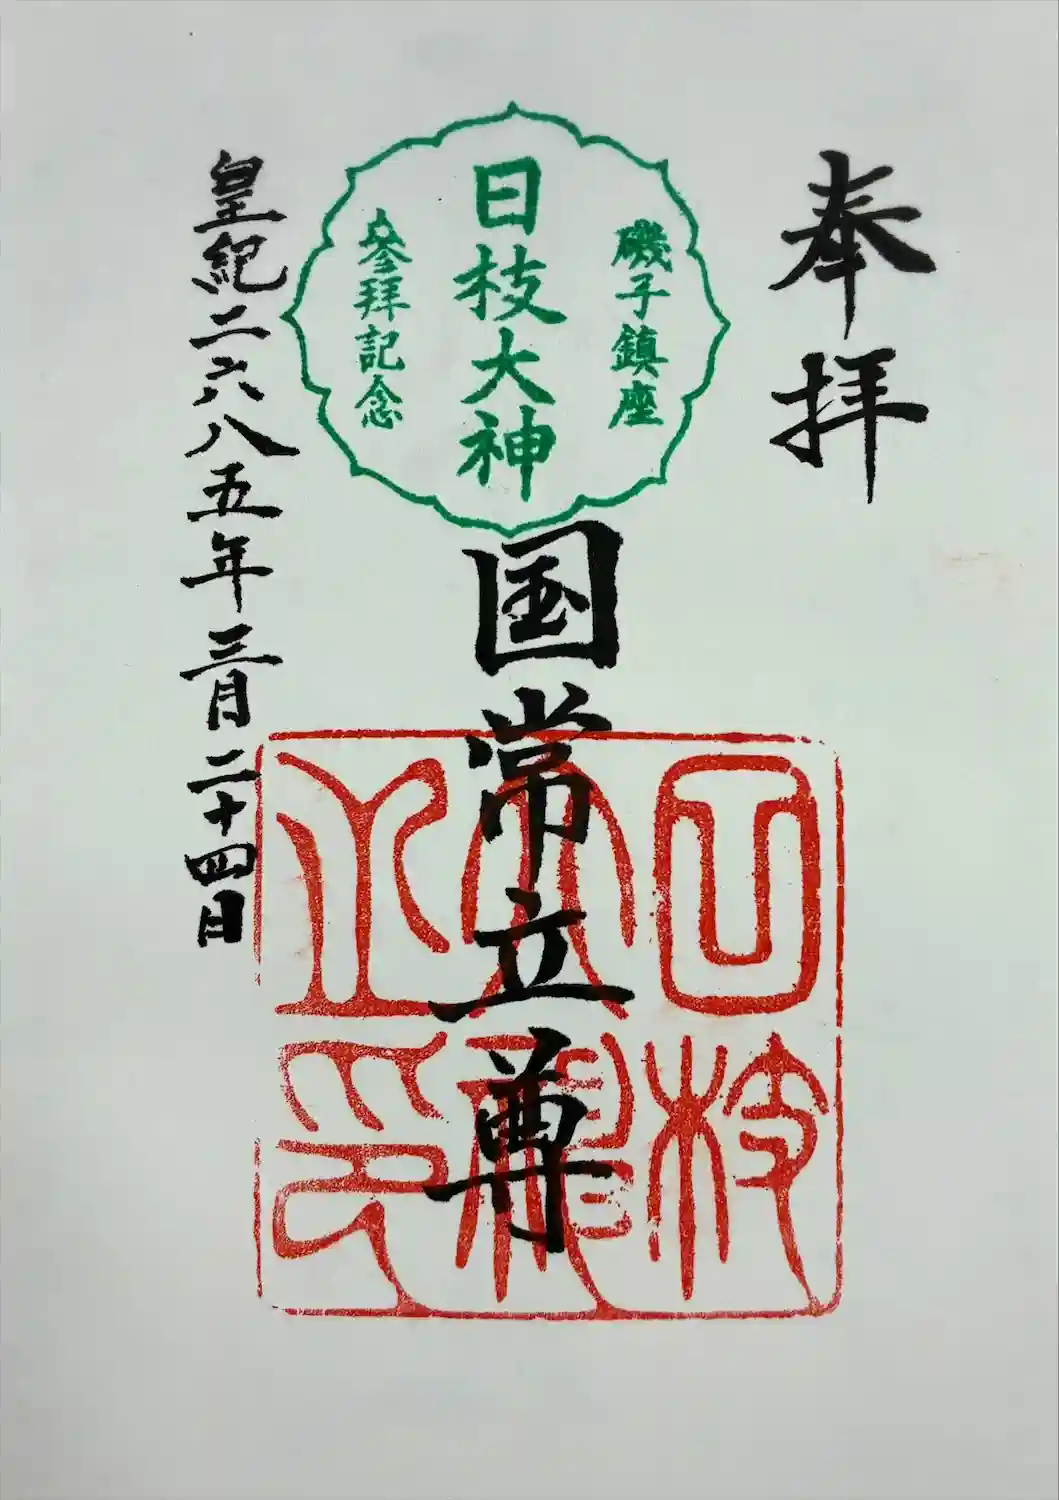 奉拝
磯子鎮座
日枝大神
参拜記念
国常立尊
日枝
大神
之印
皇紀二六八五年三月二十四日